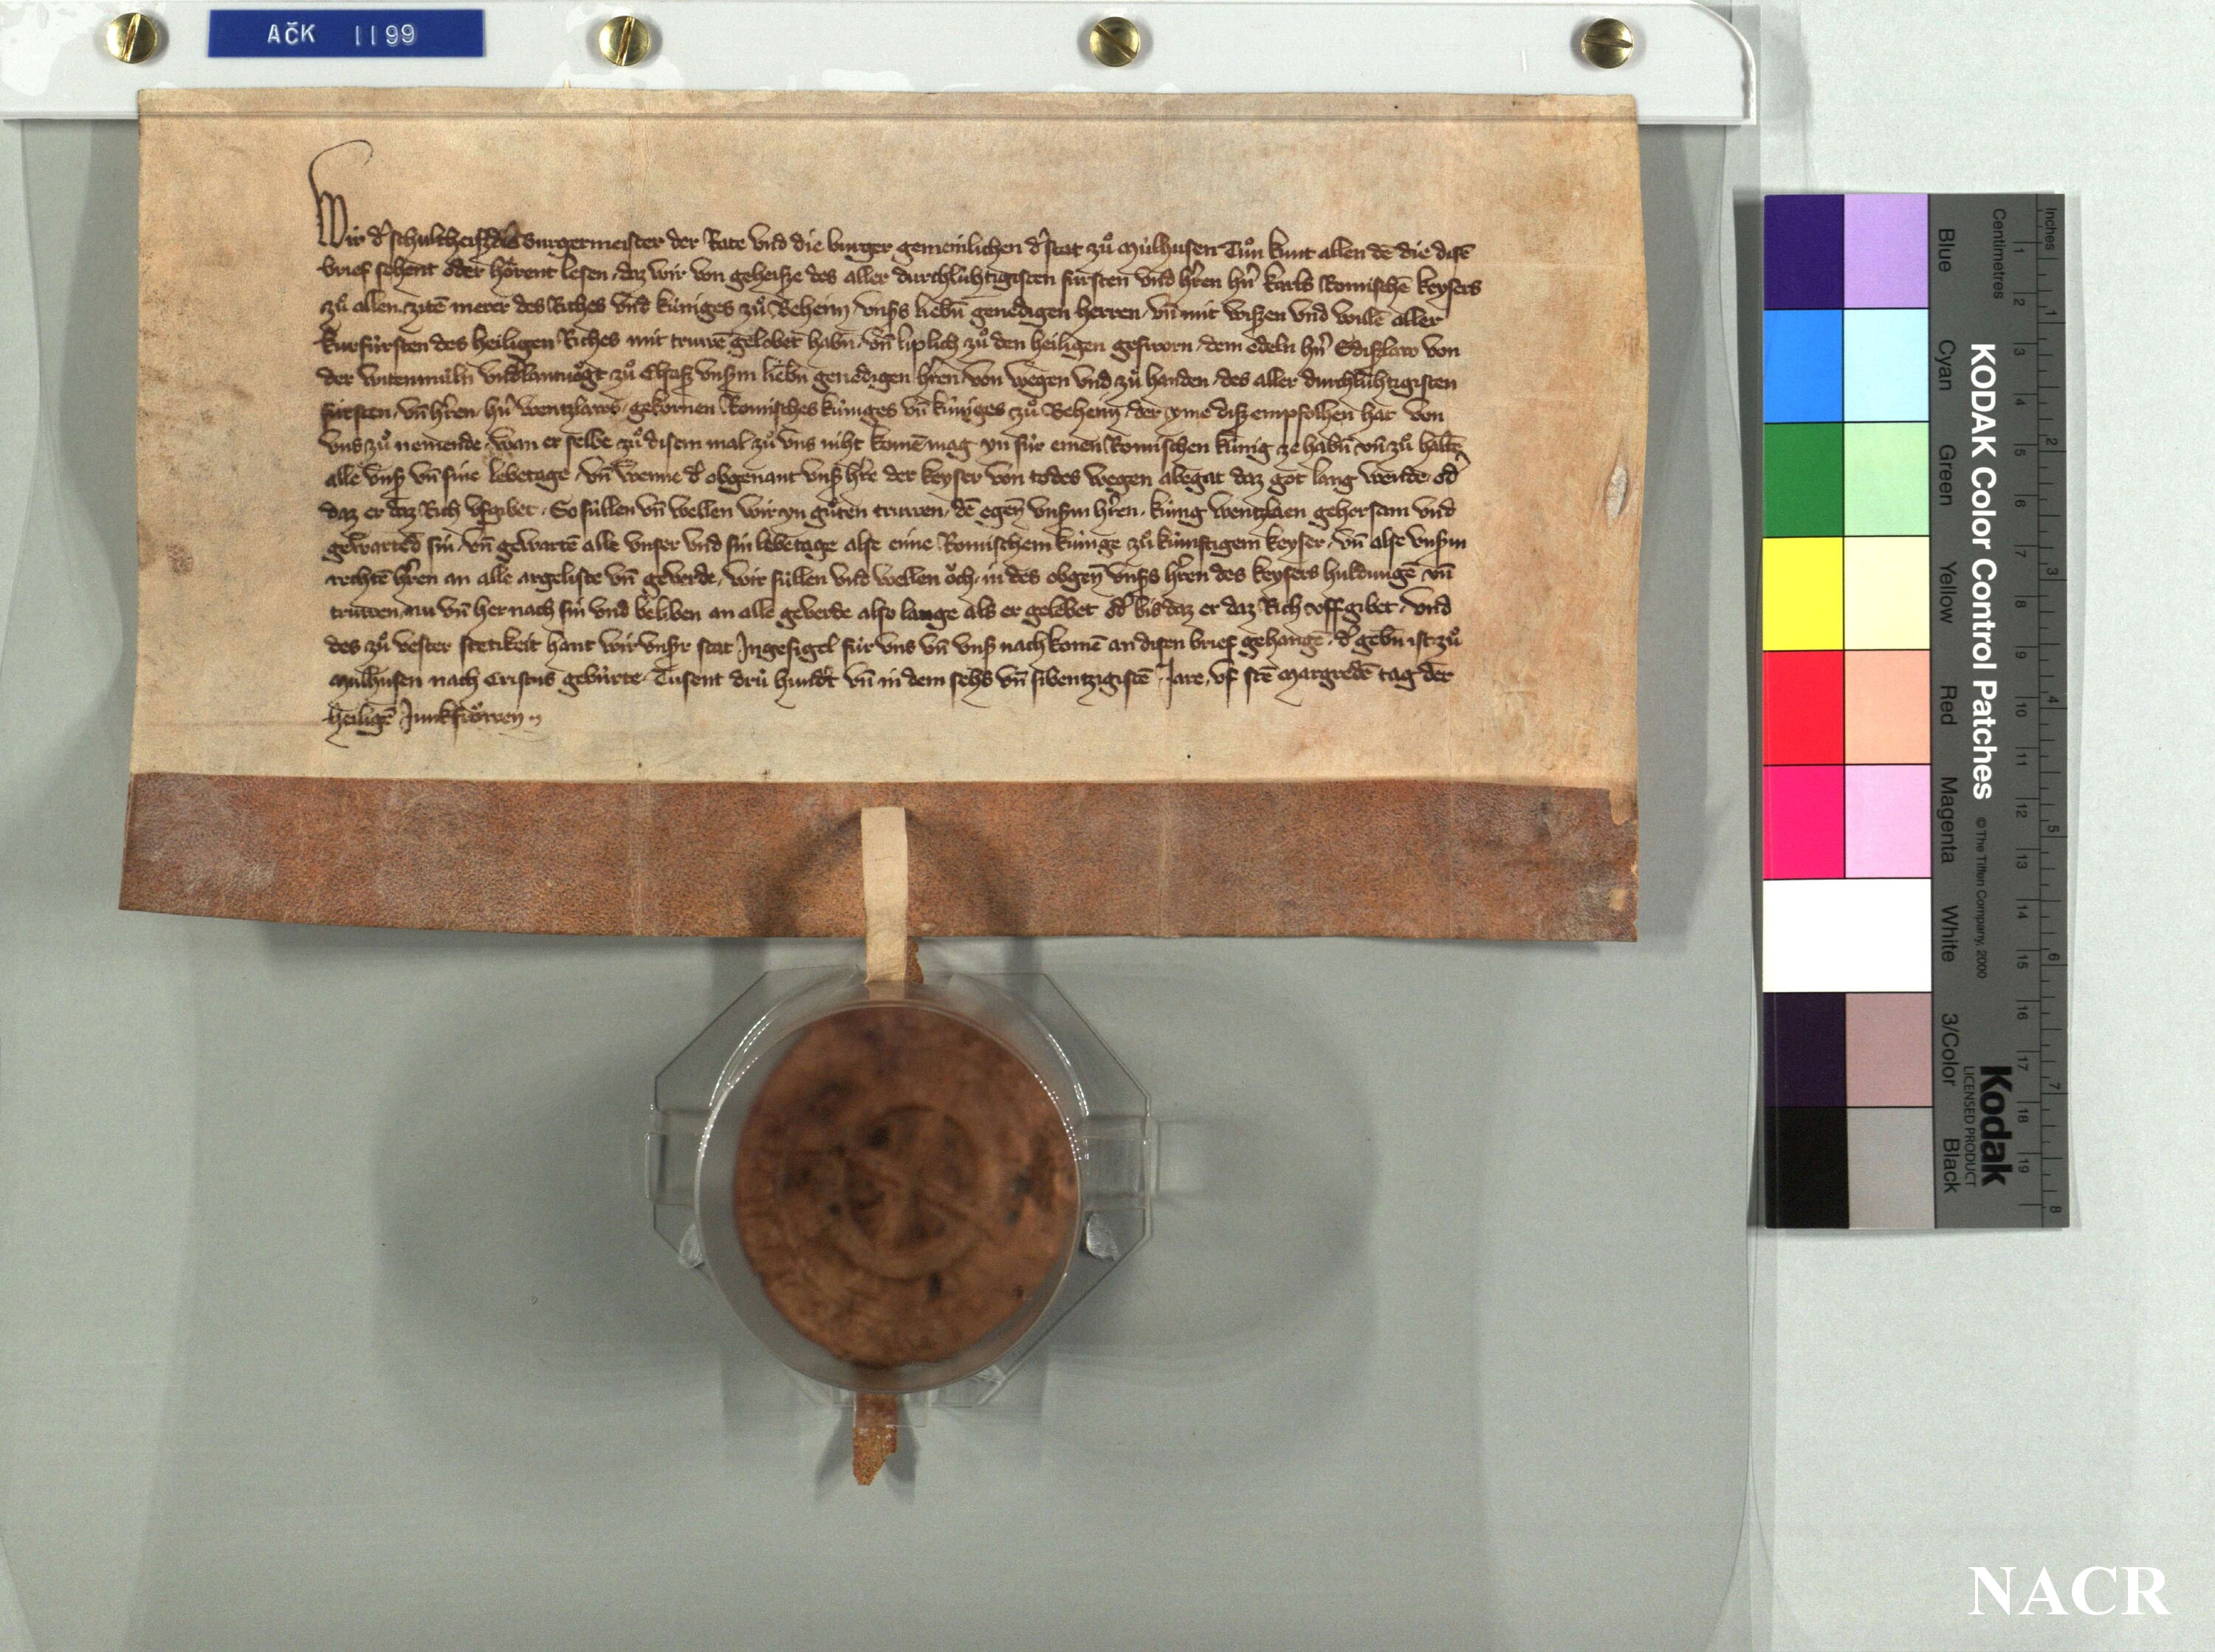 AčK 1199
Wir d᷑ schultheisz der Burgermeister der Rate vnd die burger gemeinlichen d᷑ stat zů Mülhusen Tůn kunt allen dē die disē
brief sehent oder hörent lesen, daz wir von geheisze des aller durchlühtigisten fürsten vnd h᷑ren hn᷑ karls Romischē keysers
zů allen zitē merer des Riches vnd küniges zů Beheim, vnsß liebn̄ genedigen herren, vn̄ mit wiszen vnd willē aller
kurfürsten des heiligen Riches mit truwē gelobet habn̄, vn̄ liplich zů den heiligen gesworn, dem edeln hn᷑ von
der witenmüln vnd lantuögt zů Elsasz vnßm liebn̄ genedigen h᷑ren, von wegen vnd zů handen, des aller durchlühtigisten
fürsten, vn̄ h᷑ren, hn᷑ wentzlaws, gekornen Romisches küniges vn̄ küniges zů Beheim, der yme disz empfolhen hat von
vns zů nemende, wan er selbe zů disem mal zů vns niht komē mag yn für einen Romischen künig ze habn̄ vn̄ zů haltē
alle vnß vn̄ sine lebetage, vn̄ wenne d᷑ obgenant vnß h᷑re der keyser von todes wegen abegat daz got lang wende, od᷑
daz er daz Rich vfgibet, So süllen vn̄ wellen wir yn gůten truwen, dē egen̄ vnßm h᷑ren, künig wentzlaen gehorsam vnd
gewarted sin, vn̄ gewartē alle vnser vnd sin lebetage alse eime Romischem künige zů künftigem keyser, vn̄ alse vnßm
rechtē h᷑ren an alle argeliste vn̄ geverde, wir süllen vnd wellen öch, in des obgen̄ vnßs h᷑ren des keysers huldungē vn̄
truwen, nu vn̄ her nach sin vnd beliben an alle geverde also lange als er gelebet od᷑ bis daz er daz Rich vff gibet, vnd
des zů vester stetikeit hant wir vnßr stat Jngesigel für vns vn̄ vnß nachkomē an disen brief gehangē, d᷑ gebn̄ ist zů
Mülhusen nach Cristus gebürte, Tusent drü hund᷑t vn̄ in dem sehs vn̄ sibentzigistē Jare, vf stē Margredē tag der
heiligē Junkfröwen
KODAK Color Control Patches
© The Tiffen Company, 2000
Kodak
LICENSED PRODUCT
Inches
Centimetres
Blue
Cyan
Green
Yellow
Red
Magenta
White
3/Color
Black
1 2 3 4 5 6 7 8 9 10 11 12 13 14 15 16 17 18 19
1 2 3 4 5 6 7 8
NACR